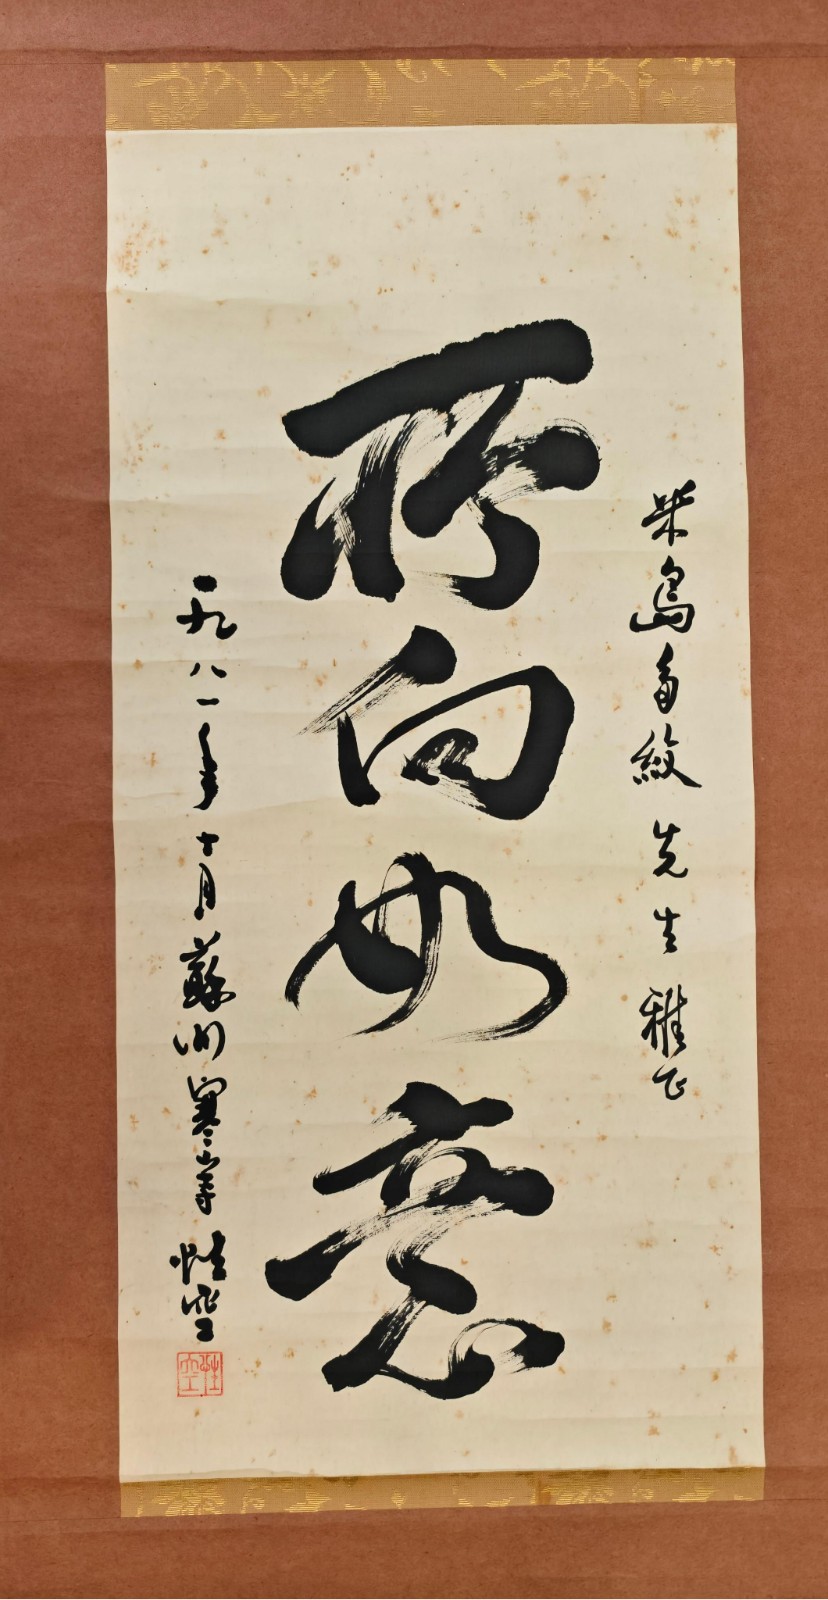 島 先生雅正
所向如意
一九八一年十月蘇州寒山寺性空
性空